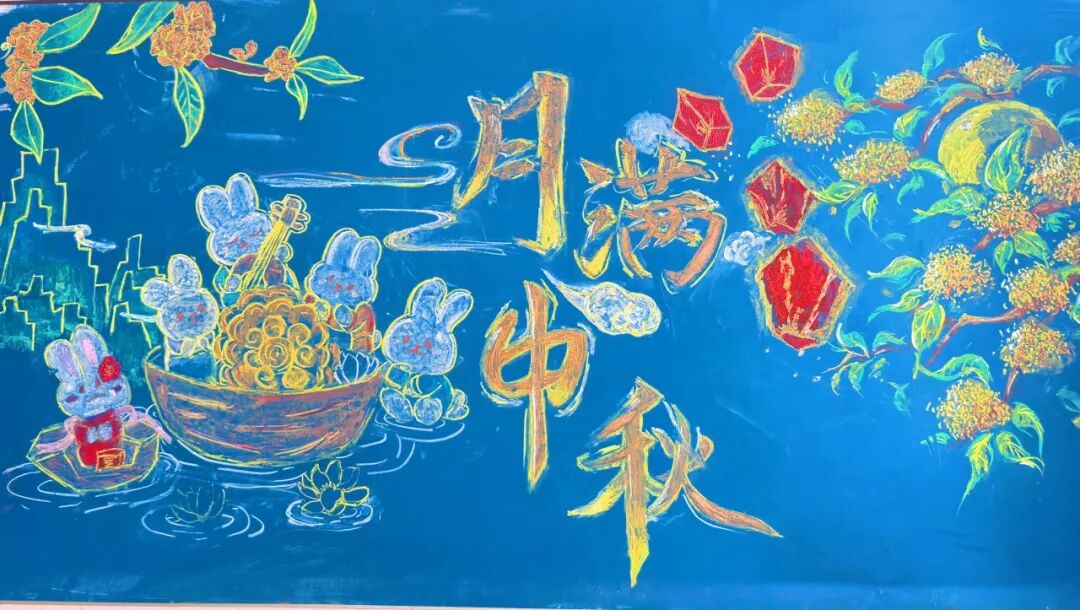 月满
中秋